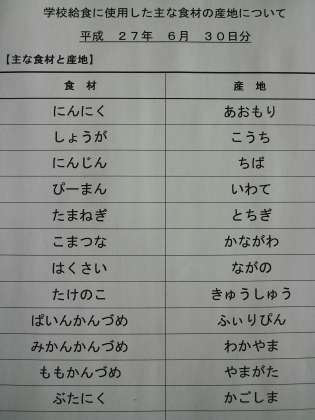 学校給食に使用した主な食材の産地について
平成　２７年　６月　３０日分
【主な食材と産地】
食　材　産　地
にんにく　あおもり
しょうが　こうち
にんじん　ちば
ぴーまん　いわて
たまねぎ　とちぎ
こまつな　かながわ
はくさい　ながの
たけのこ　きゅうしゅう
ぱいんかんづめ　ふぃりぴん
みかんかんづめ　わかやま
ももかんづめ　やまがた
ぶたにく　かごしま